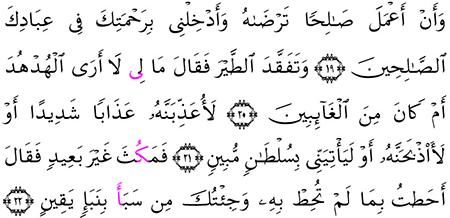 وَأَنْ أَعْمَلَ صَٰلِحًا تَرْضَىٰهُ وَأَدْخِلْنِى بِرَحْمَتِكَ فِى عِبَادِكَ
ٱلصَّٰلِحِينَ ﴿١٩﴾ وَتَفَقَّدَ ٱلطَّيْرَ فَقَالَ مَا لِىَ لَا أَرَى ٱلْهُدْهُدَ
أَمْ كَانَ مِنَ ٱلْغَآئِبِينَ ﴿٢٠﴾ لَأُعَذِّبَنَّهُۥ عَذَابًا شَدِيدًا أَوْ
لَأَا۟ذْبَحَنَّهُۥ أَوْ لَيَأْتِيَنِّى بِسُلْطَٰنٍ مُّبِينٍ ﴿٢١﴾ فَمَكُثَ غَيْرَ بَعِيدٍ فَقَالَ
أَحَطتُ بِمَا لَمْ تُحِطْ بِهِۦ وَجِئْتُكَ مِن سَبَأَ بِنَبَإٍ يَقِينٍ ﴿٢٢﴾